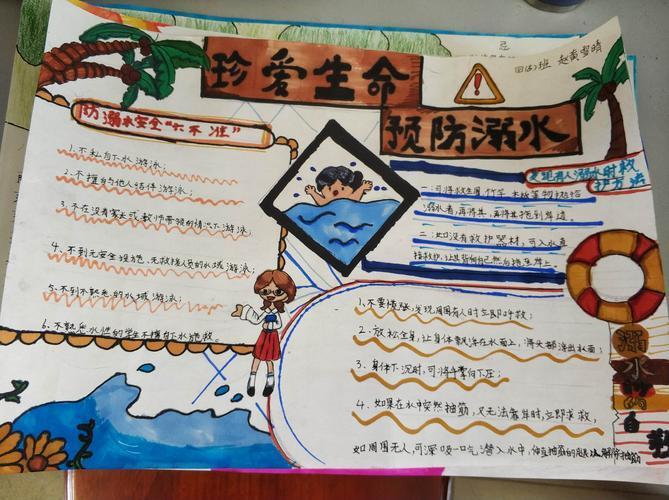 珍爱生命
预防溺水
四(6)班 赵黄雪晴
防溺水安全"六不准"
1、不私自下水游泳；
2、不擅自与他人结伴游泳；
3、不在没有家长或教师带领的情况下游泳；
4、不到无安全设施、无救援人员的水域游泳；
5、不到不熟悉的水域游泳；
6、不熟悉水性的学生不擅自下水施救。
发现有人溺水时救
护方法
一：可将救生圈、竹竿、木板等物抛给
溺水者，再将其拖到岸边
二：如没有救护器材，可入水直
接救护
溺水时的自救
1、不要慌张，发现周围有人时立即呼救；
2、放松全身，让身体飘浮在水面上，将头部浮出水面；
3、身体下沉时，可将手掌向下压；
4、如果在水中突然抽筋，又无法靠岸时，立即求救，
如周围无人，可深吸一口气潜入水中，伸直抽筋的